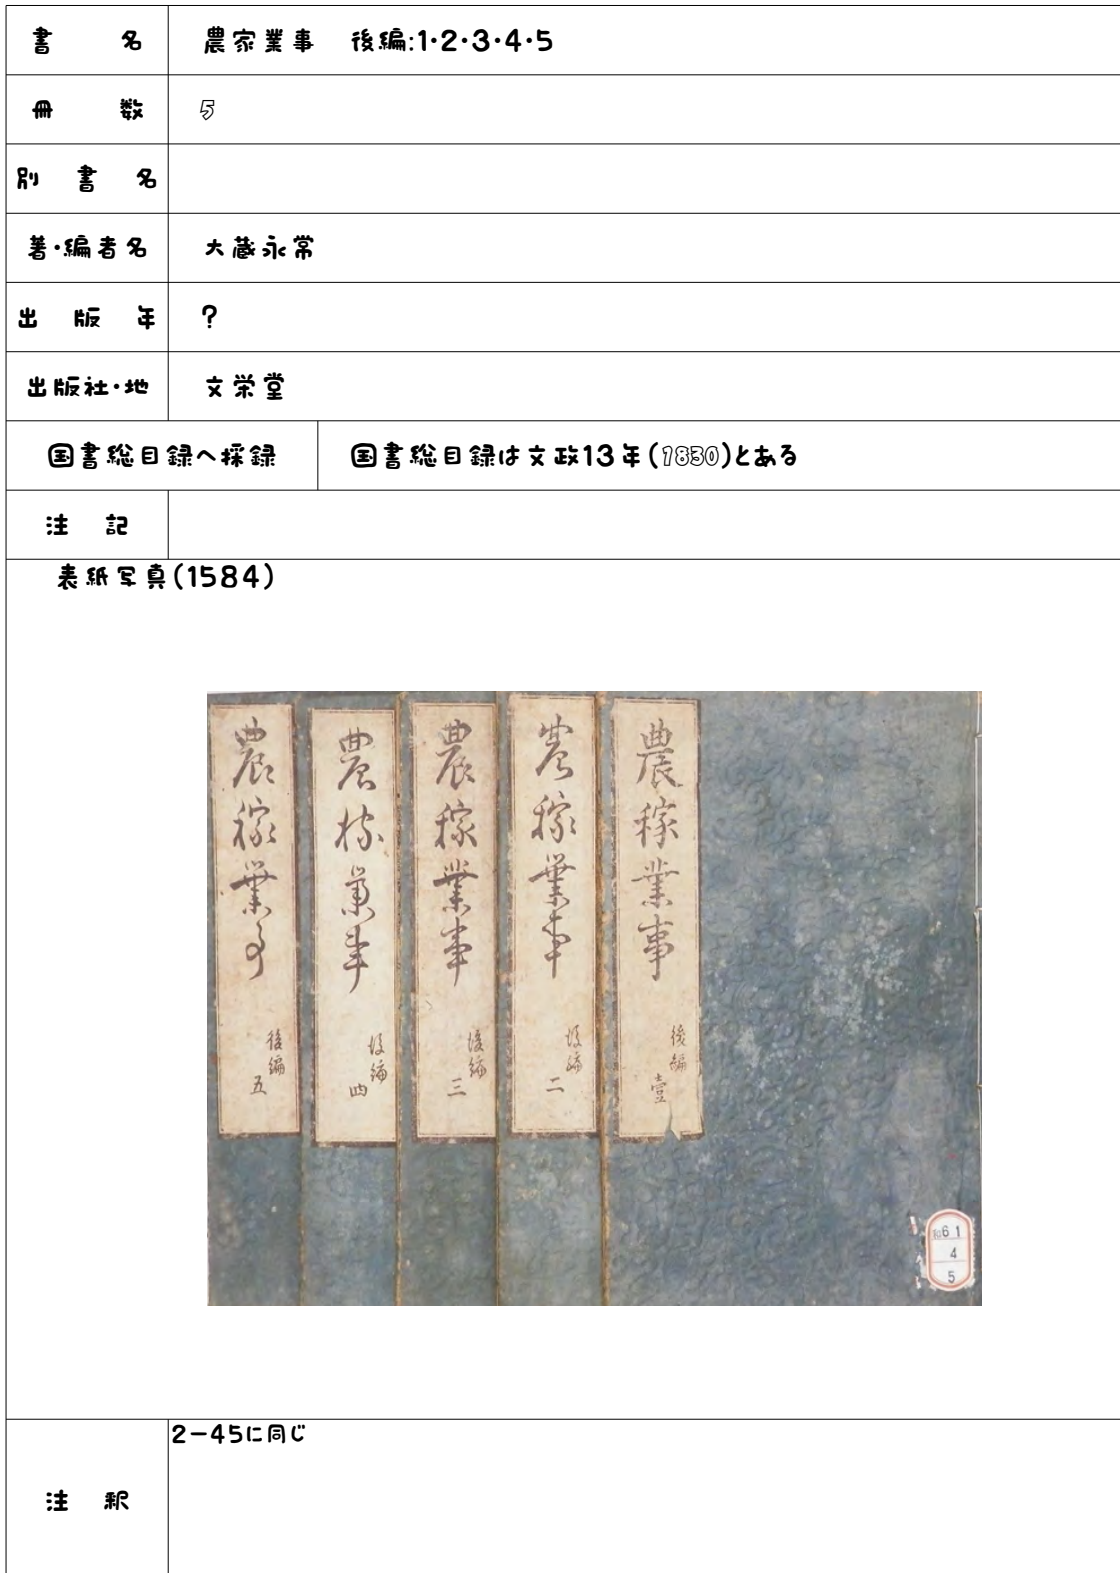 書名 農家業事 後編:1・2・3・4・5
冊数 5
別書名
著・編者名 大蔵永常
出版年 ?
出版社・地 文栄堂
国書総目録へ採録 国書総目録は文政13年(1830)とある
注記
表紙写真(1584)
農稼業事 後編 壹
農稼業事 後編 二
農稼業事 後編 三
農稼業事 後編 四
農稼業事 後編 五
61
4
5
注釈 2-45に同じ